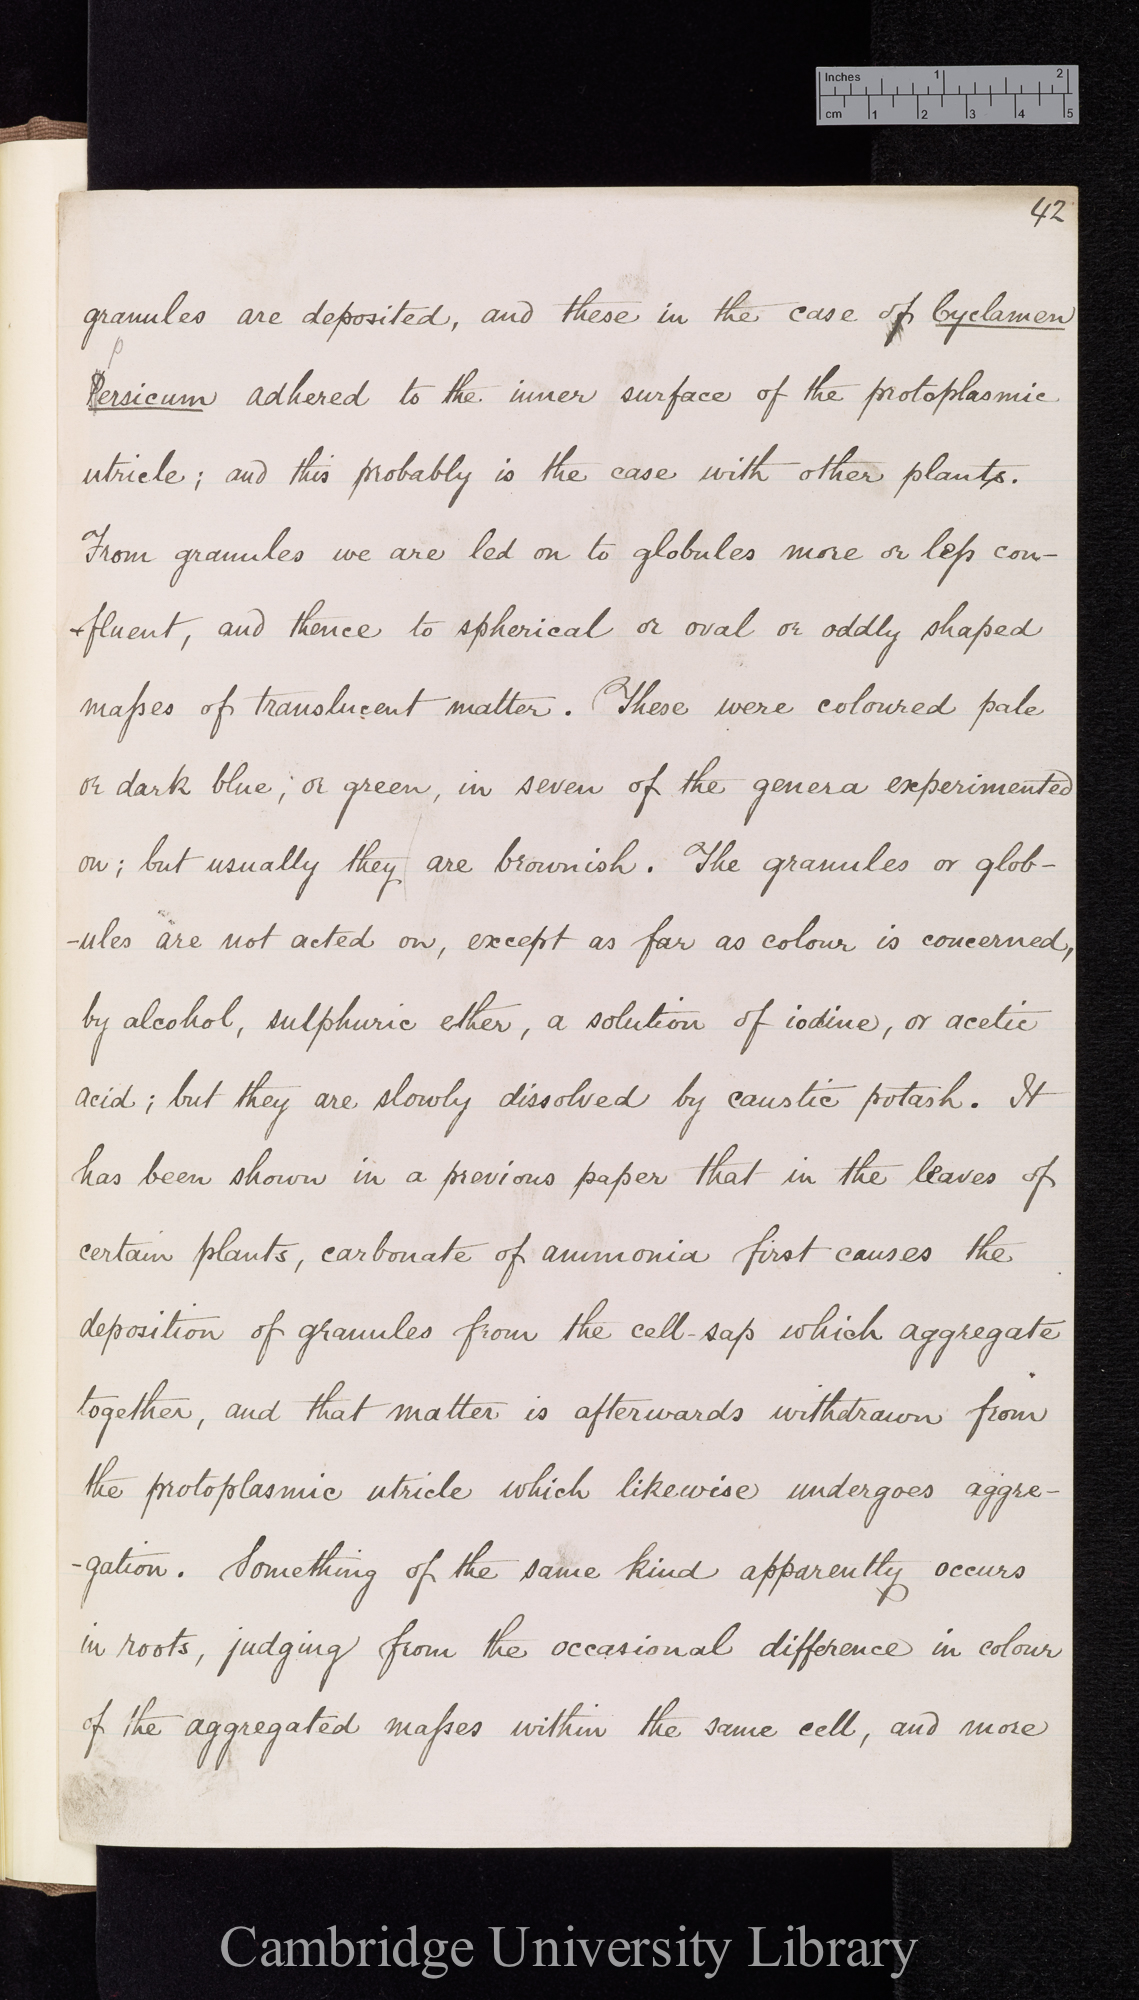 Inches 1 2
cm 1 2 3 4 5
42
granules are deposited, and these in the case of Cyclamen
p
Persicum adhered to the inner surface of the protoplasmic
utricle; and this probably is the case with other plants.
From granules we are led on to globules more or leſs con-
-fluent, and thence to spherical or oval or oddly shaped
maſses of translucent matter. These were coloured pale
or dark blue, or green, in seven of the genera experimented
on; but usually they are brownish. The granules or glob-
-ules are not acted on, except as far as colour is concerned,
by alcohol, sulphuric ether, a solution of iodine, or acetic
acid; but they are slowly dissolved by caustic potash. It
has been shown in a previous paper that in the leaves of
certain plants, carbonate of ammonia first causes the
deposition of granules from the cell-sap which aggregate
together, and that matter is afterwards withdrawn from
the protoplasmic utricle which likewise undergoes aggre-
-gation. Something of the same kind apparently occurs
in roots, judging from the occasional difference in colour
of the aggregated maſses within the same cell, and more
Cambridge University Library